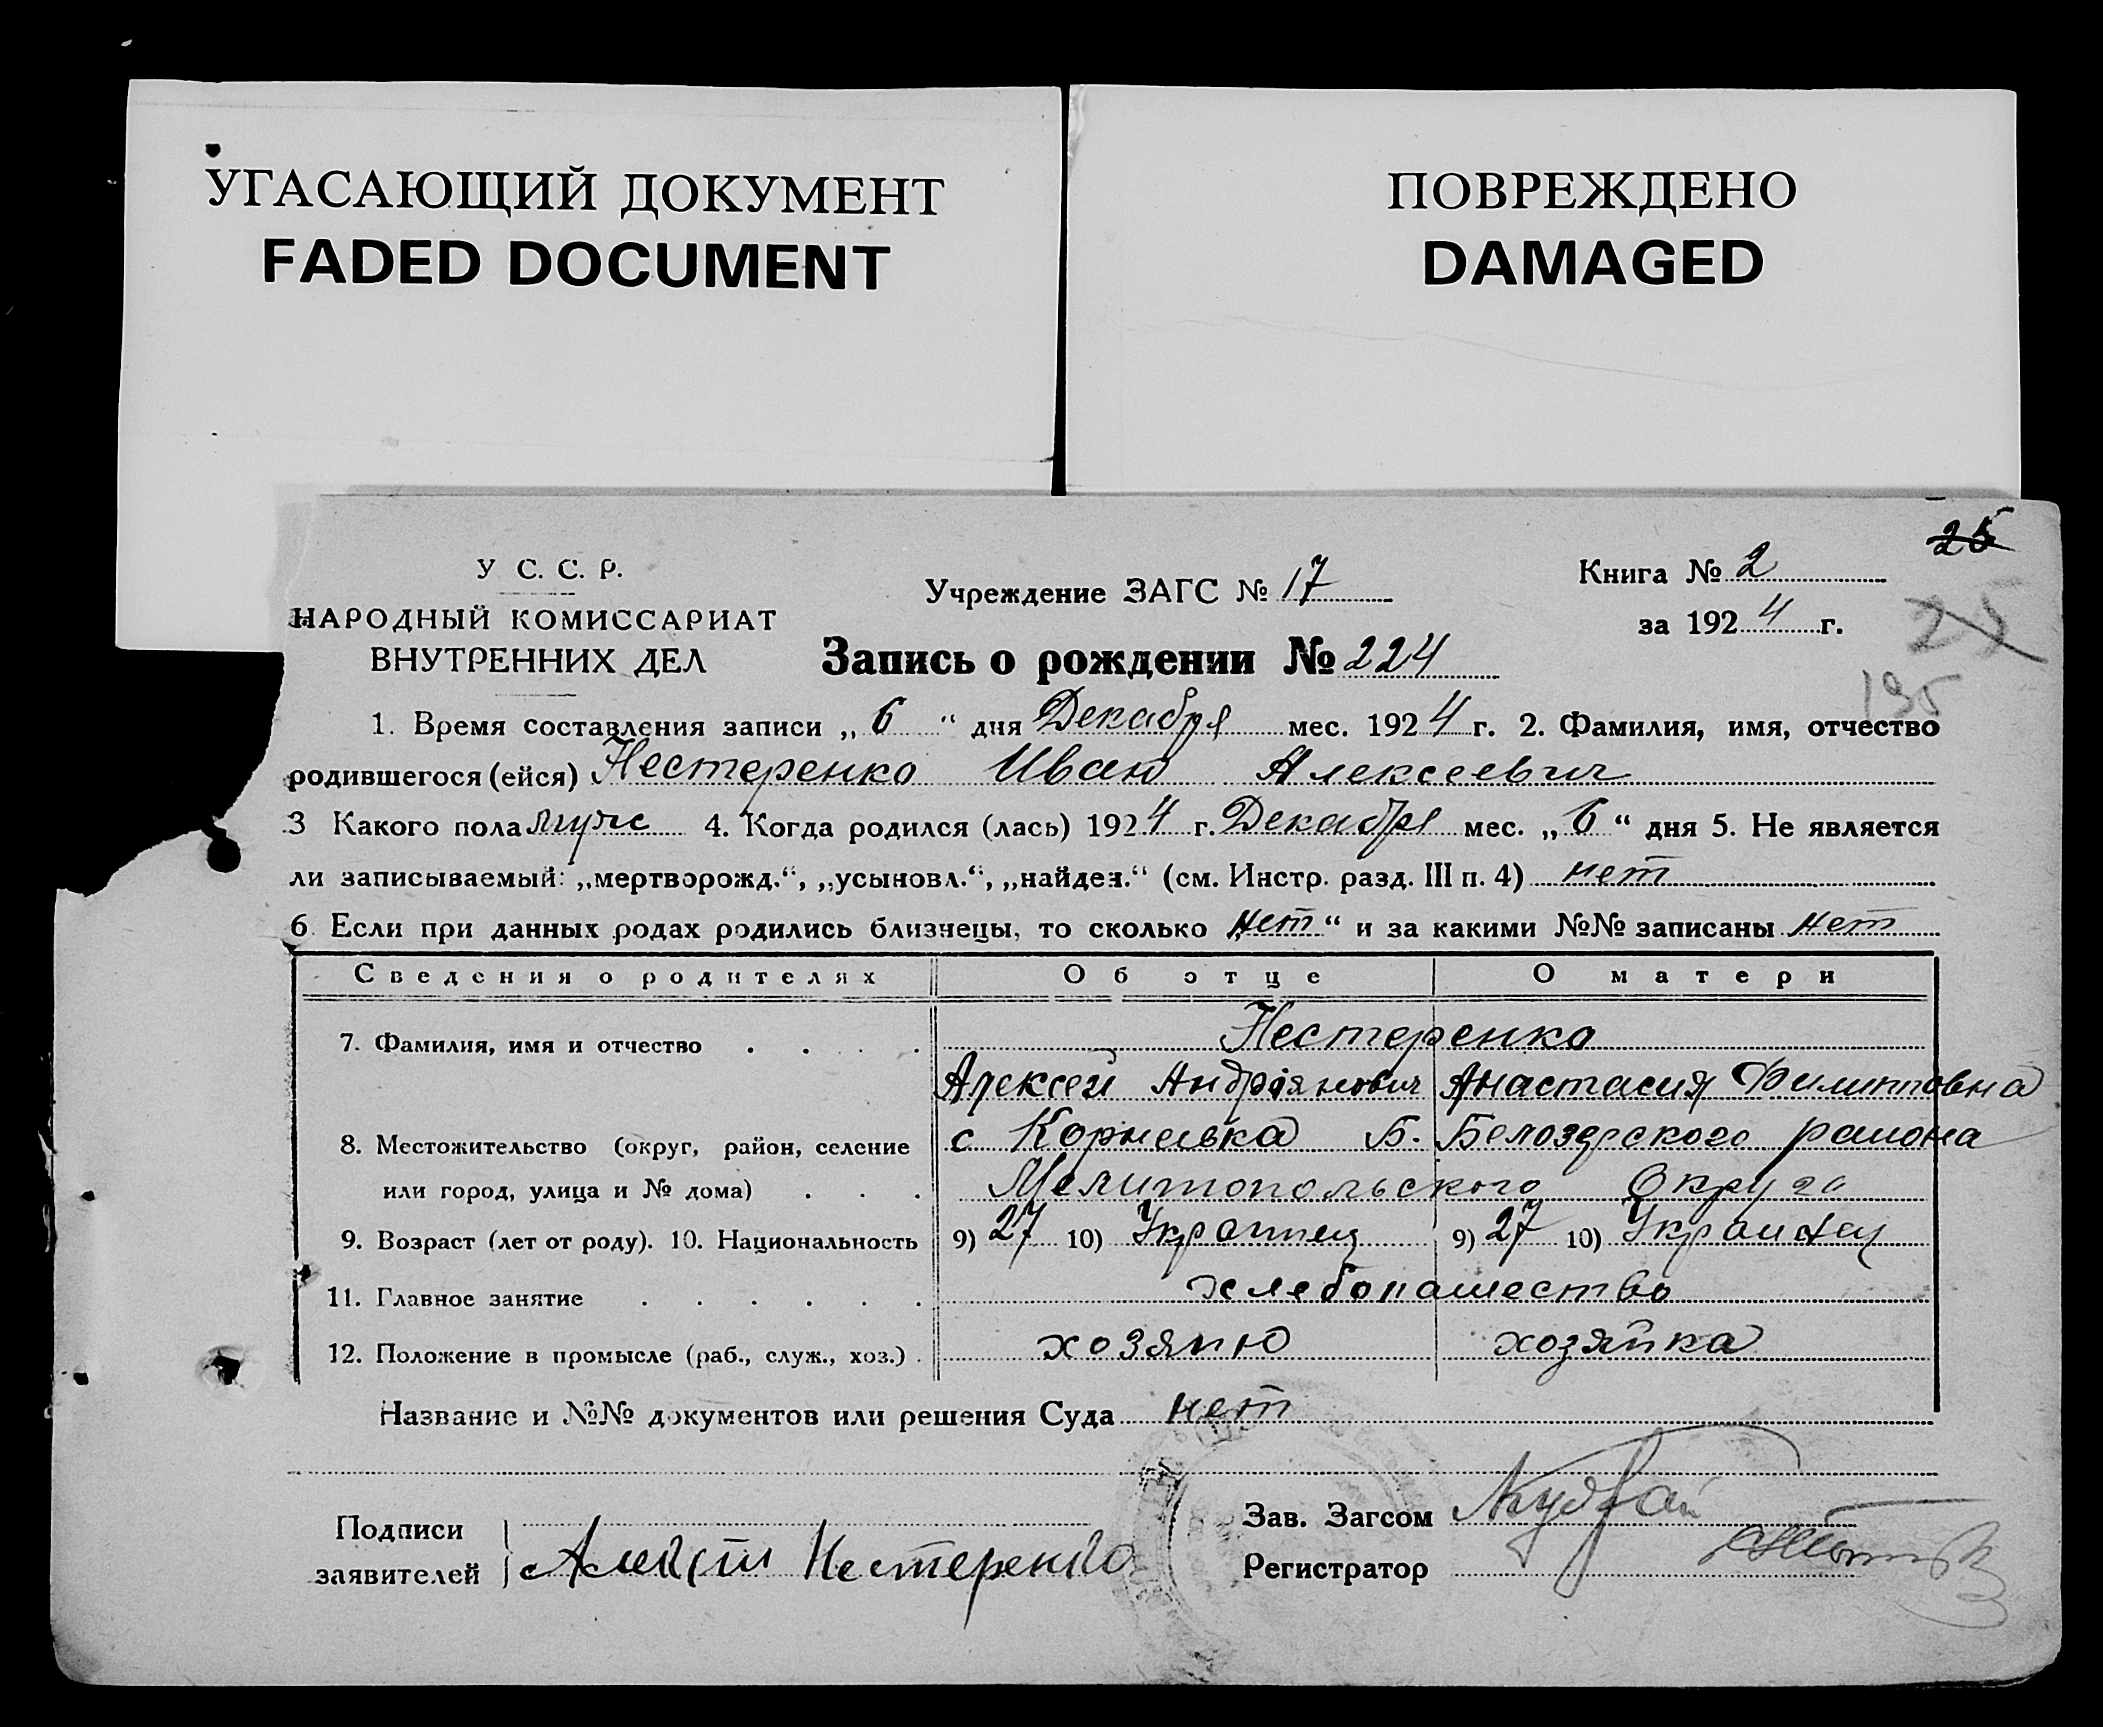 УГАСАЮЩИЙ ДОКУМЕНТ
FADED DOCUMENT
ПОВРЕЖДЕНО
DAMAGED
25
У С. С. Р.
НАРОДНЫЙ КОМИССАРИАТ
ВНУТРЕННИХ ДЕЛ
Учреждение ЗАГС № 17
Книга № 2
за 1924 г.
25
195
Запись о рождении № 224
1. Время составления записи „ 6 “ дня Декабря мес. 1924 г. 2. Фамилия, имя, отчество
родившегося (ейся) Нестеренко Иван Алексеевич
3 Какого пола муж 4. Когда родился (лась) 1924 г. Декабря мес. „ 6 “ дня 5. Не является
ли записываемый: „мертворожд.“, „усыновл.“, „найден.“ (см. Инстр. разд. III п. 4) нет
6. Если при данных родах родились близнецы, то сколько „нет“ и за какими №№ записаны нет
Сведения о родителях Об отце О матери
7. Фамилия, имя и отчество . . . . Нестеренко
Алексей Андріянович Анастасия Филипповна
8. Местожительство (округ, район, селение с Корнеевка Б. Белозерского района
или город, улица и № дома) . . . Мелитопольского Округа
9. Возраст (лет от роду). 10. Национальность 9) 27 10) Украинец 9) 27 10) Украинец
11. Главное занятие . . . . . . хлебопашество
12. Положение в промысле (раб., служ., хоз.) . хозяин хозяйка
Название и №№ документов или решения Суда нет
Подписи
заявителей Алексей Нестеренко
Зав. Загсом
Регистратор